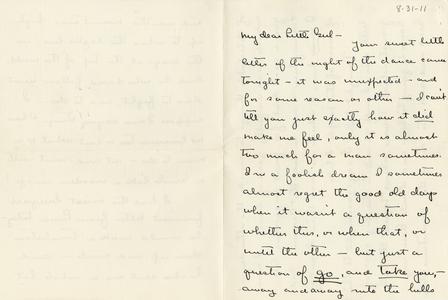 8-31-11
My dear little Girl -
Your sweet little
letter of the night of the dance came
tonight - it was unexpected - and
for some reason or other - I can't
tell you just exactly how it did
make me feel, only it is almost
too much for a man sometimes.
In a foolish dream I sometimes
almost regret the good old days
when it wasn't a question of
whether this, or when that, or
until the other - but just a
question of go, and take you, -
away and away into the hills